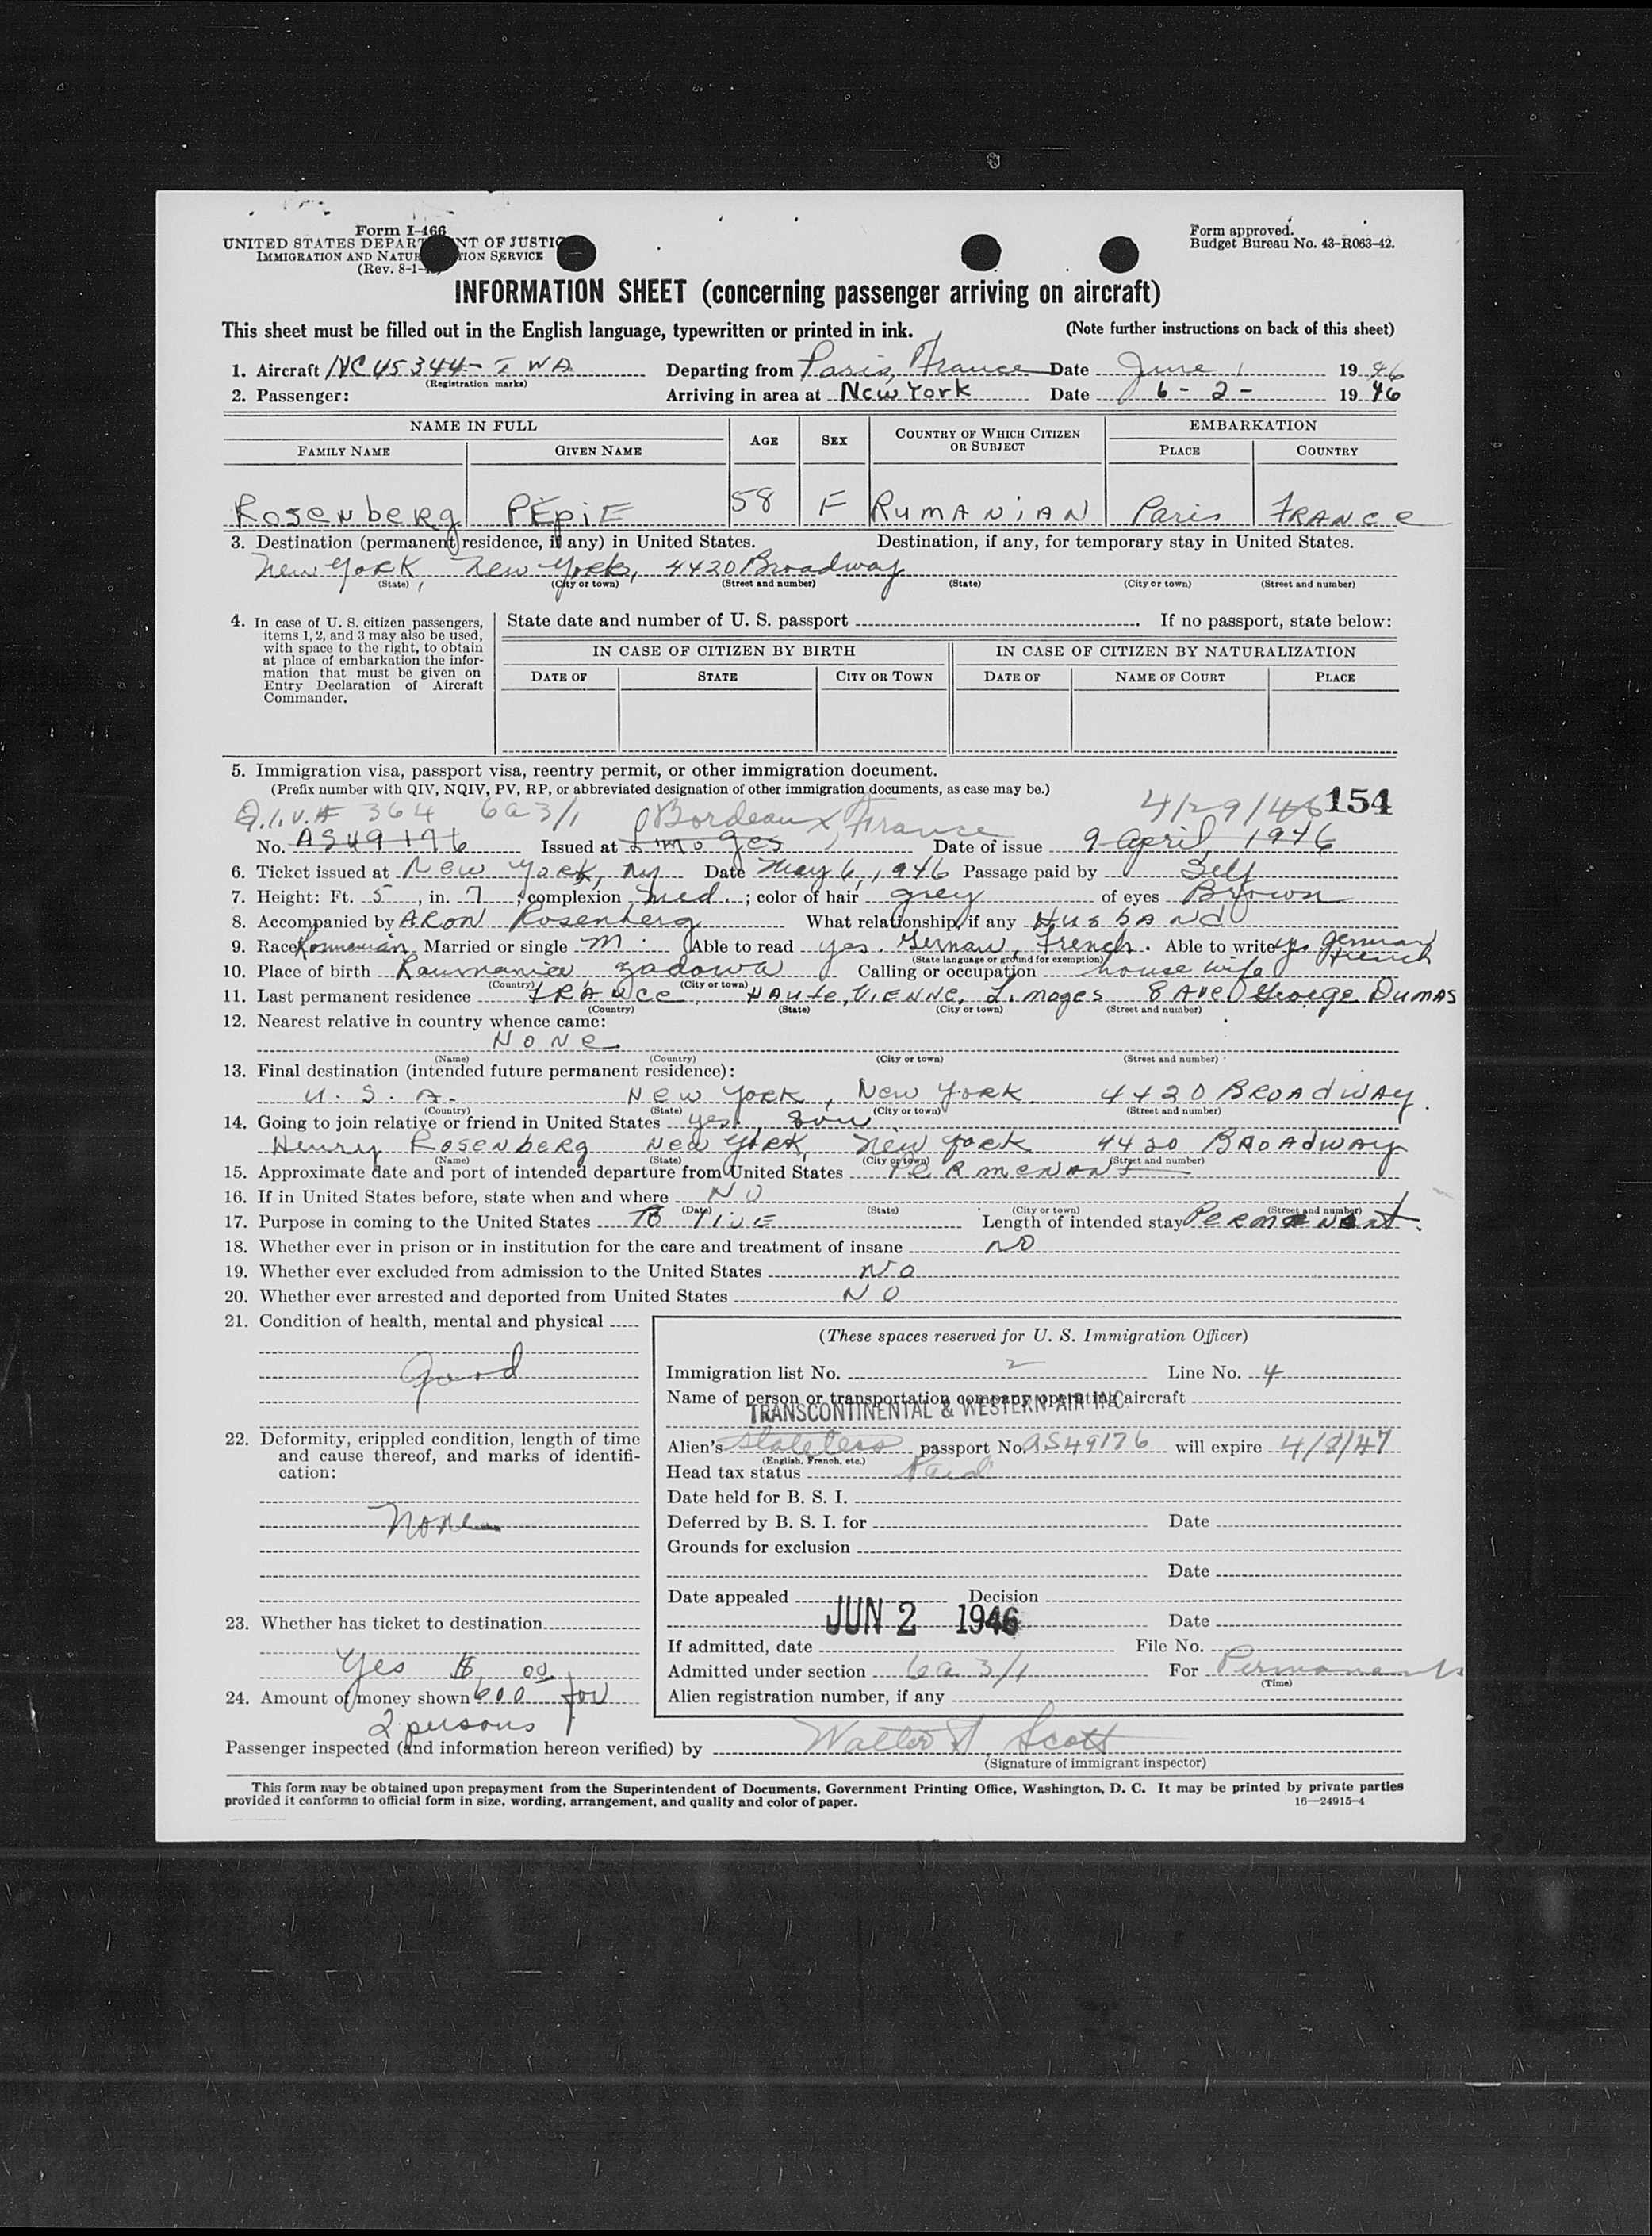 Form I-466
UNITED STATES DEPARTMENT OF JUSTICE
IMMIGRATION AND NATURALIZATION SERVICE
(Rev. 8-1-
Form approved.
Budget Bureau No. 43-R063-42.
INFORMATION SHEET (concerning passenger arriving on aircraft)
This sheet must be filled out in the English language, typewritten or printed in ink. (Note further instructions on back of this sheet)
1. Aircraft NC45344- TWA Departing from Paris, France Date June 1 1946
(Registration marks)
2. Passenger: Arriving in area at New York Date 6-2- 1946
NAME IN FULL AGE SEX COUNTRY OF WHICH CITIZEN OR SUBJECT EMBARKATION
FAMILY NAME GIVEN NAME PLACE COUNTRY
Rosenberg PEPIE 58 F RUMANIAN Paris FRANCE
3. Destination (permanent residence, if any) in United States. Destination, if any, for temporary stay in United States.
New York, New York, 4420 Broadway
(State) (City or town) (Street and number) (State) (City or town) (Street and number)
4. In case of U. S. citizen passengers, items 1, 2, and 3 may also be used, with space to the right, to obtain at place of embarkation the information that must be given on Entry Declaration of Aircraft Commander.
State date and number of U. S. passport . If no passport, state below:
IN CASE OF CITIZEN BY BIRTH IN CASE OF CITIZEN BY NATURALIZATION
DATE OF STATE CITY OR TOWN DATE OF NAME OF COURT PLACE
5. Immigration visa, passport visa, reentry permit, or other immigration document.
(Prefix number with QIV, NQIV, PV, RP, or abbreviated designation of other immigration documents, as case may be.)
Q.I.V.# 364 6a3/1 Bordeaux, France 4/29/46 154
No. AS49176 Issued at Limoges Date of issue 9 April 1946
6. Ticket issued at New York, NY Date May 6, 1946 Passage paid by Self
7. Height: Ft. 5, in. 7; complexion med.; color of hair grey of eyes Brown
8. Accompanied by ARON Rosenberg What relationship, if any HUSBAND
9. Race Roumanian Married or single M. Able to read yes. German, French. Able to write yes German French
(State language or ground for exemption)
10. Place of birth Roumania Zadowa Calling or occupation house wife
(Country) (City or town)
11. Last permanent residence FRANCE, HAUTE, VIENNE, Limoges 8 AVE George DUMAS
(Country) (State) (City or town) (Street and number)
12. Nearest relative in country whence came:
NONE
(Name) (Country) (City or town) (Street and number)
13. Final destination (intended future permanent residence):
U. S. A. New York, New York 4420 BROADWAY.
(Country) (State) (City or town) (Street and number)
14. Going to join relative or friend in United States yes, Son
Henry Rosenberg New York, New York 4420 BROADWAY
(Name) (State) (City or town) (Street and number)
15. Approximate date and port of intended departure from United States PERMENANT
16. If in United States before, state when and where NO
(Date) (State) (City or town) (Street and number)
17. Purpose in coming to the United States To LIVE Length of intended stay Permanent.
18. Whether ever in prison or in institution for the care and treatment of insane NO
19. Whether ever excluded from admission to the United States NO
20. Whether ever arrested and deported from United States NO
21. Condition of health, mental and physical
Good
22. Deformity, crippled condition, length of time and cause thereof, and marks of identification:
None
23. Whether has ticket to destination
Yes $ 00
24. Amount of money shown 600 for
2 persons
(These spaces reserved for U. S. Immigration Officer)
Immigration list No. 2 Line No. 4
Name of person or transportation company operating aircraft
TRANSCONTINENTAL & WESTERN AIR INC
Alien's stateless passport No. AS49176 will expire 4/8/47
(English, French, etc.)
Head tax status Paid
Date held for B. S. I.
Deferred by B. S. I. for Date
Grounds for exclusion
Date
Date appealed Decision
JUN 2 1946 Date
If admitted, date File No.
Admitted under section 6a 3/1 For Permanent
(Time)
Alien registration number, if any
Passenger inspected (and information hereon verified) by Walter Scott
(Signature of immigrant inspector)
This form may be obtained upon prepayment from the Superintendent of Documents, Government Printing Office, Washington, D. C. It may be printed by private parties
provided it conforms to official form in size, wording, arrangement, and quality and color of paper. 16—24915-4